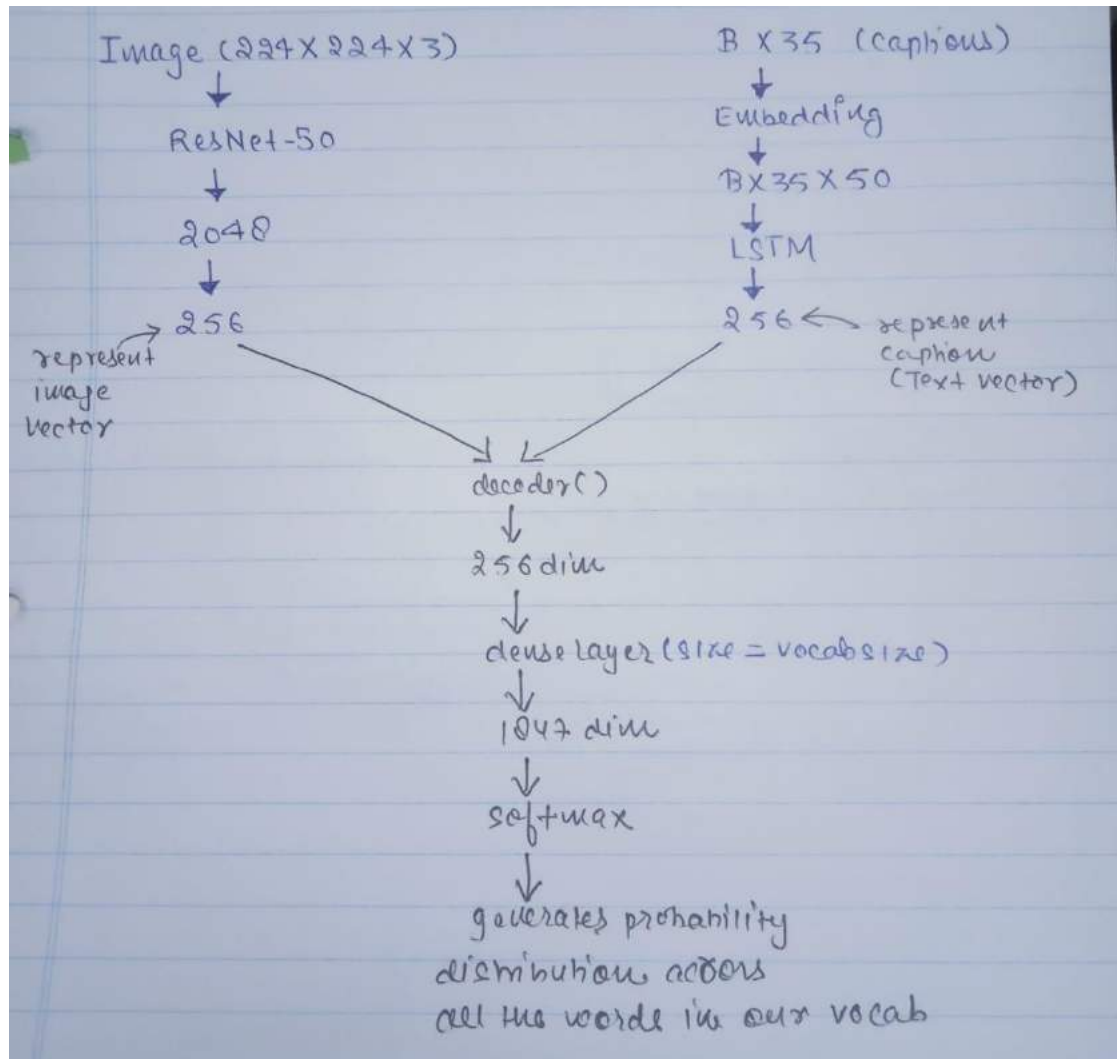 Image (224X224X3)
↓
ResNet-50
↓
2048
↓
256
represent
image
vector
B X 35 (Captions)
↓
Embedding
↓
BX35X50
↓
LSTM
↓
256
represent
caption
(Text vector)
decoder()
↓
256 dim
↓
dense layer (size = vocabsize)
↓
1847 dim
↓
softmax
↓
generates probability
distribution across
all the words in our vocab